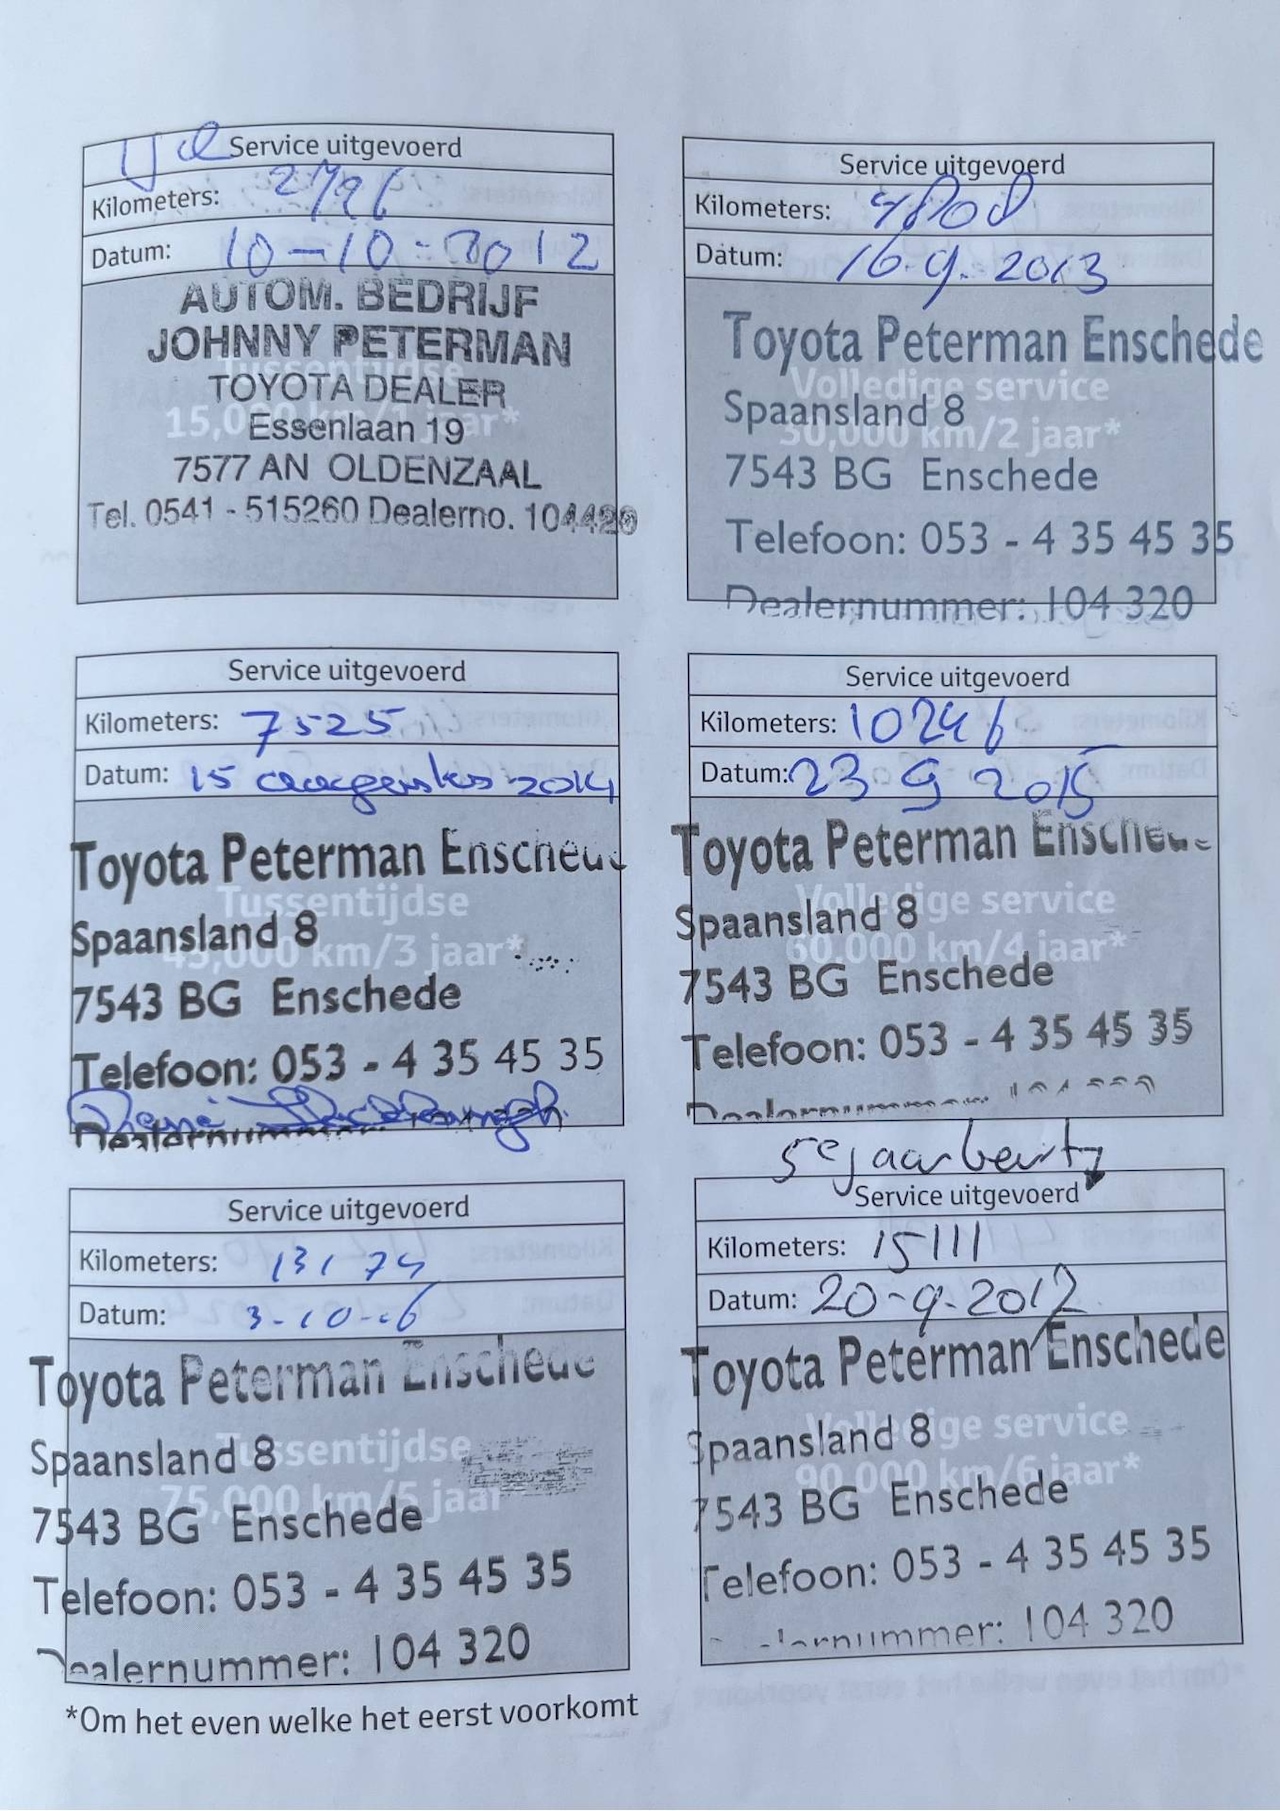 Service uitgevoerd
Kilometers: 2796
Datum: 10-10-2012
AUTOM. BEDRIJF
JOHNNY PETERMAN
Tussentijdse
TOYOTA DEALER
15,000 km/1 jaar*
Essenlaan 19
7577 AN OLDENZAAL
Tel. 0541 - 515260 Dealerno. 104420
Service uitgevoerd
Kilometers: 4808
Datum: 16-9-2013
Toyota Peterman Enschede
Volledige service
Spaansland 8
30,000 km/2 jaar*
7543 BG Enschede
Telefoon: 053 - 4 35 45 35
Dealernummer: 104 320
Service uitgevoerd
Kilometers: 7525
Datum: 15 augustus 2014
Toyota Peterman Enschede
Tussentijdse
Spaansland 8
45,000 km/3 jaar*
7543 BG Enschede
Telefoon: 053 - 4 35 45 35
Dealernummer:
Service uitgevoerd
Kilometers: 10246
Datum: 23 9 2015
Toyota Peterman Enschede
Volledige service
Spaansland 8
60,000 km/4 jaar*
7543 BG Enschede
Telefoon: 053 - 4 35 45 35
Dealernummer:
Service uitgevoerd
Kilometers: 13174
Datum: 3-10-16
Toyota Peterman Enschede
Tussentijdse
Spaansland 8
75,000 km/5 jaar
7543 BG Enschede
Telefoon: 053 - 4 35 45 35
Dealernummer: 104 320
5e jaarbeurt
Service uitgevoerd
Kilometers: 15111
Datum: 20-9-2017
Toyota Peterman Enschede
Volledige service
Spaansland 8
90,000 km/6 jaar*
7543 BG Enschede
Telefoon: 053 - 4 35 45 35
Dealernummer: 104 320
*Om het even welke het eerst voorkomt